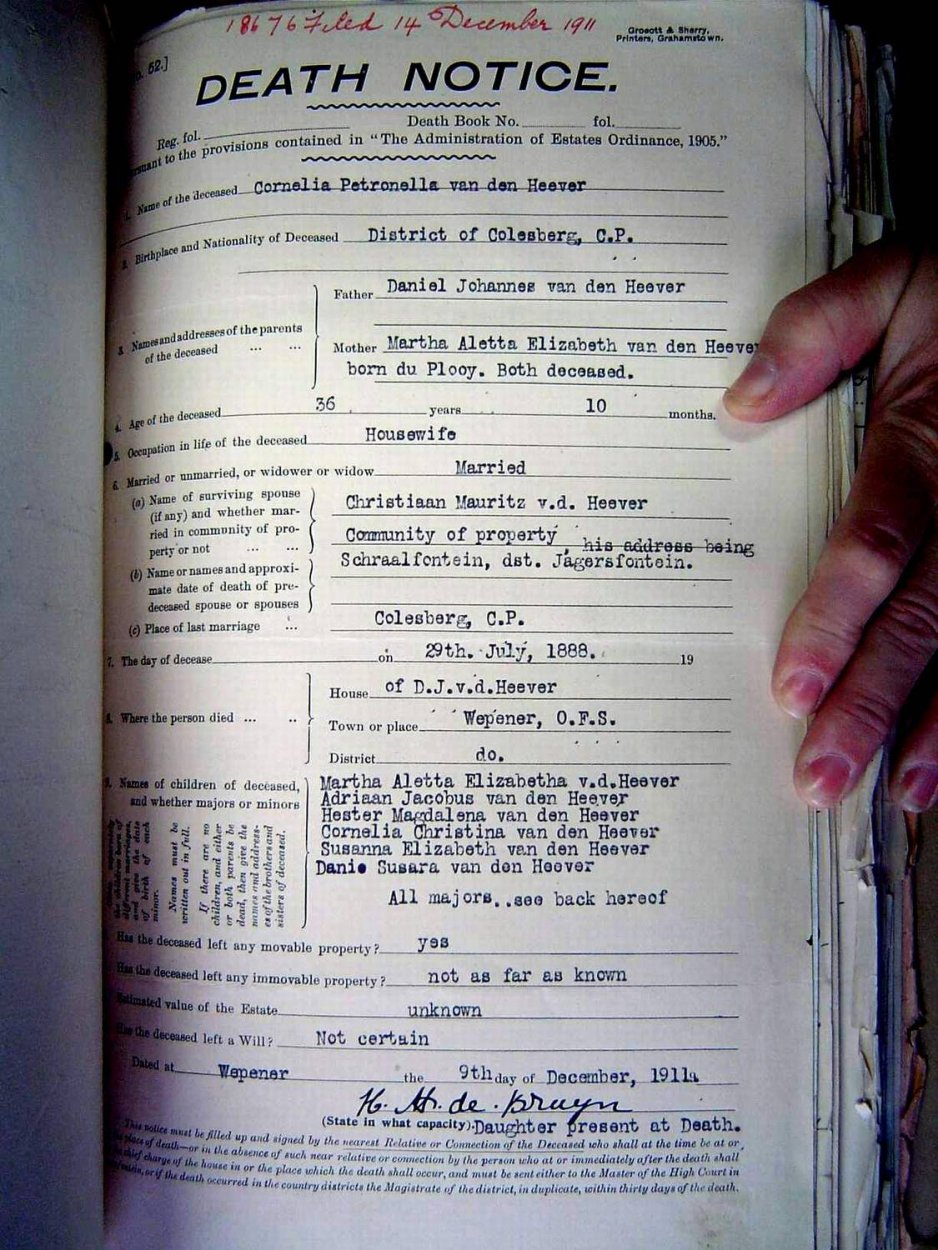 18676 Filed 14 December 1911
Grocott & Sherry,
Printers, Grahamstown.
52.]
DEATH NOTICE.
Reg. fol. Death Book No. fol.
to the provisions contained in "The Administration of Estates Ordinance, 1905."
1. Name of the deceased Cornelia Petronella van den Heever
2. Birthplace and Nationality of Deceased District of Colesberg, C.P.
Father Daniel Johannes van den Heever
3. Names and addresses of the parents of the deceased ... ...
Mother Martha Aletta Elizabeth van den Heever
born du Plooy. Both deceased.
4. Age of the deceased 36 years 10 months.
5. Occupation in life of the deceased Housewife
6. Married or unmarried, or widower or widow Married
(a) Name of surviving spouse Christiaan Mauritz v.d. Heever
(if any) and whether mar-
ried in community of pro- Community of property, his address being
perty or not ... ... Schraalfontein, dst. Jagersfontein.
(b) Name or names and approxi-
mate date of death of pre-
deceased spouse or spouses
(c) Place of last marriage ... Colesberg, C.P.
7. The day of decease on 29th. July, 1888. 19
House of D.J.v.d.Heever
8. Where the person died ... .. Town or place Wepener, O.F.S.
District do.
9. Names of children of deceased, Martha Aletta Elizabetha v.d.Heever
and whether majors or minors Adriaan Jacobus van den Heever
Hester Magdalena van den Heever
Cornelia Christina van den Heever
Susanna Elizabeth van den Heever
Danie Susara van den Heever
the children born of
different marriages,
and give the date
of birth of each
minor.
Names must be
written out in full.
If there are no
children, and either
or both parents be
dead, then give the
names and address-
es of the brothers and
sisters of deceased.
All majors..see back hereof
Has the deceased left any movable property? yes
Has the deceased left any immovable property? not as far as known
Estimated value of the Estate unknown
Has the deceased left a Will? Not certain
Dated at Wepener the 9th day of December, 1911
de Bruyn
(State in what capacity). Daughter present at Death.
This notice must be filled up and signed by the nearest Relative or Connection of the Deceased who shall at the time be at or
place of death—or in the absence of such near relative or connection by the person who at or immediately after the death shall
chief charge of the house in or the place which the death shall occur, and must be sent either to the Master of the High Court in
or if the death occurred in the country districts the Magistrate of the district, in duplicate, within thirty days of the death.